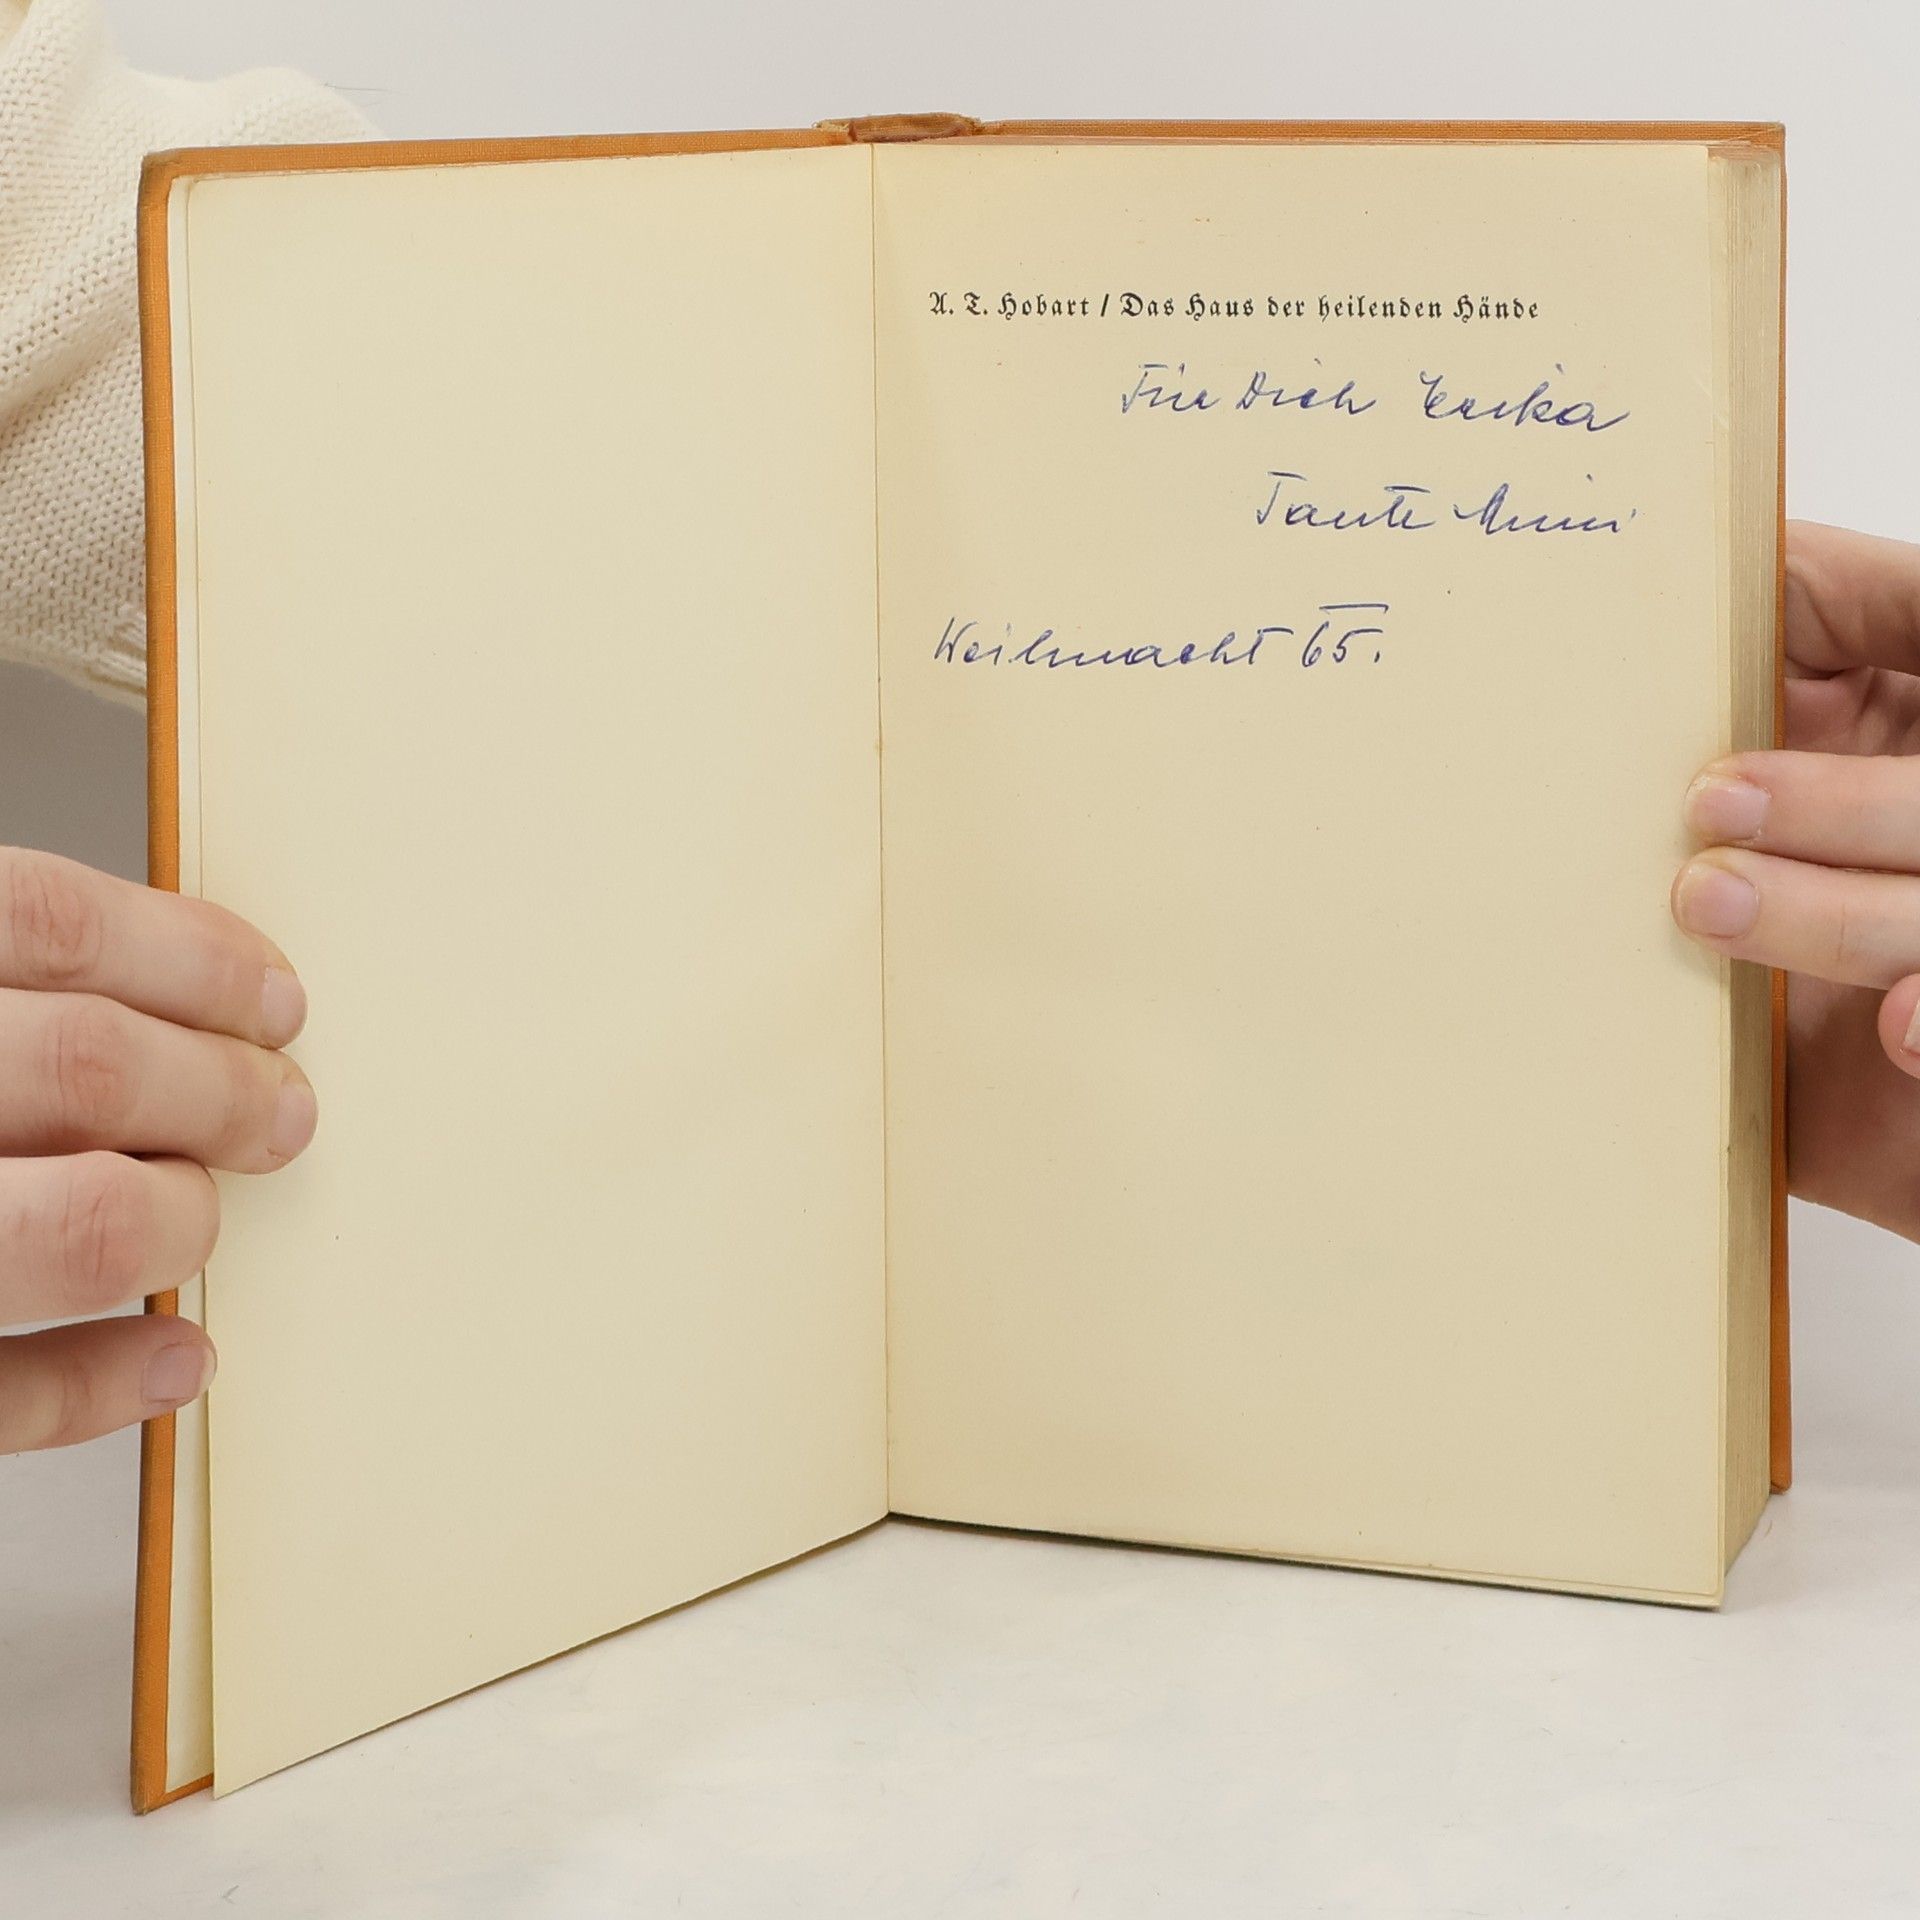 A. T. Hobart / Das Haus der heilenden Hände
Für Dich Erika
Tante Mimi
Weihnacht 65.